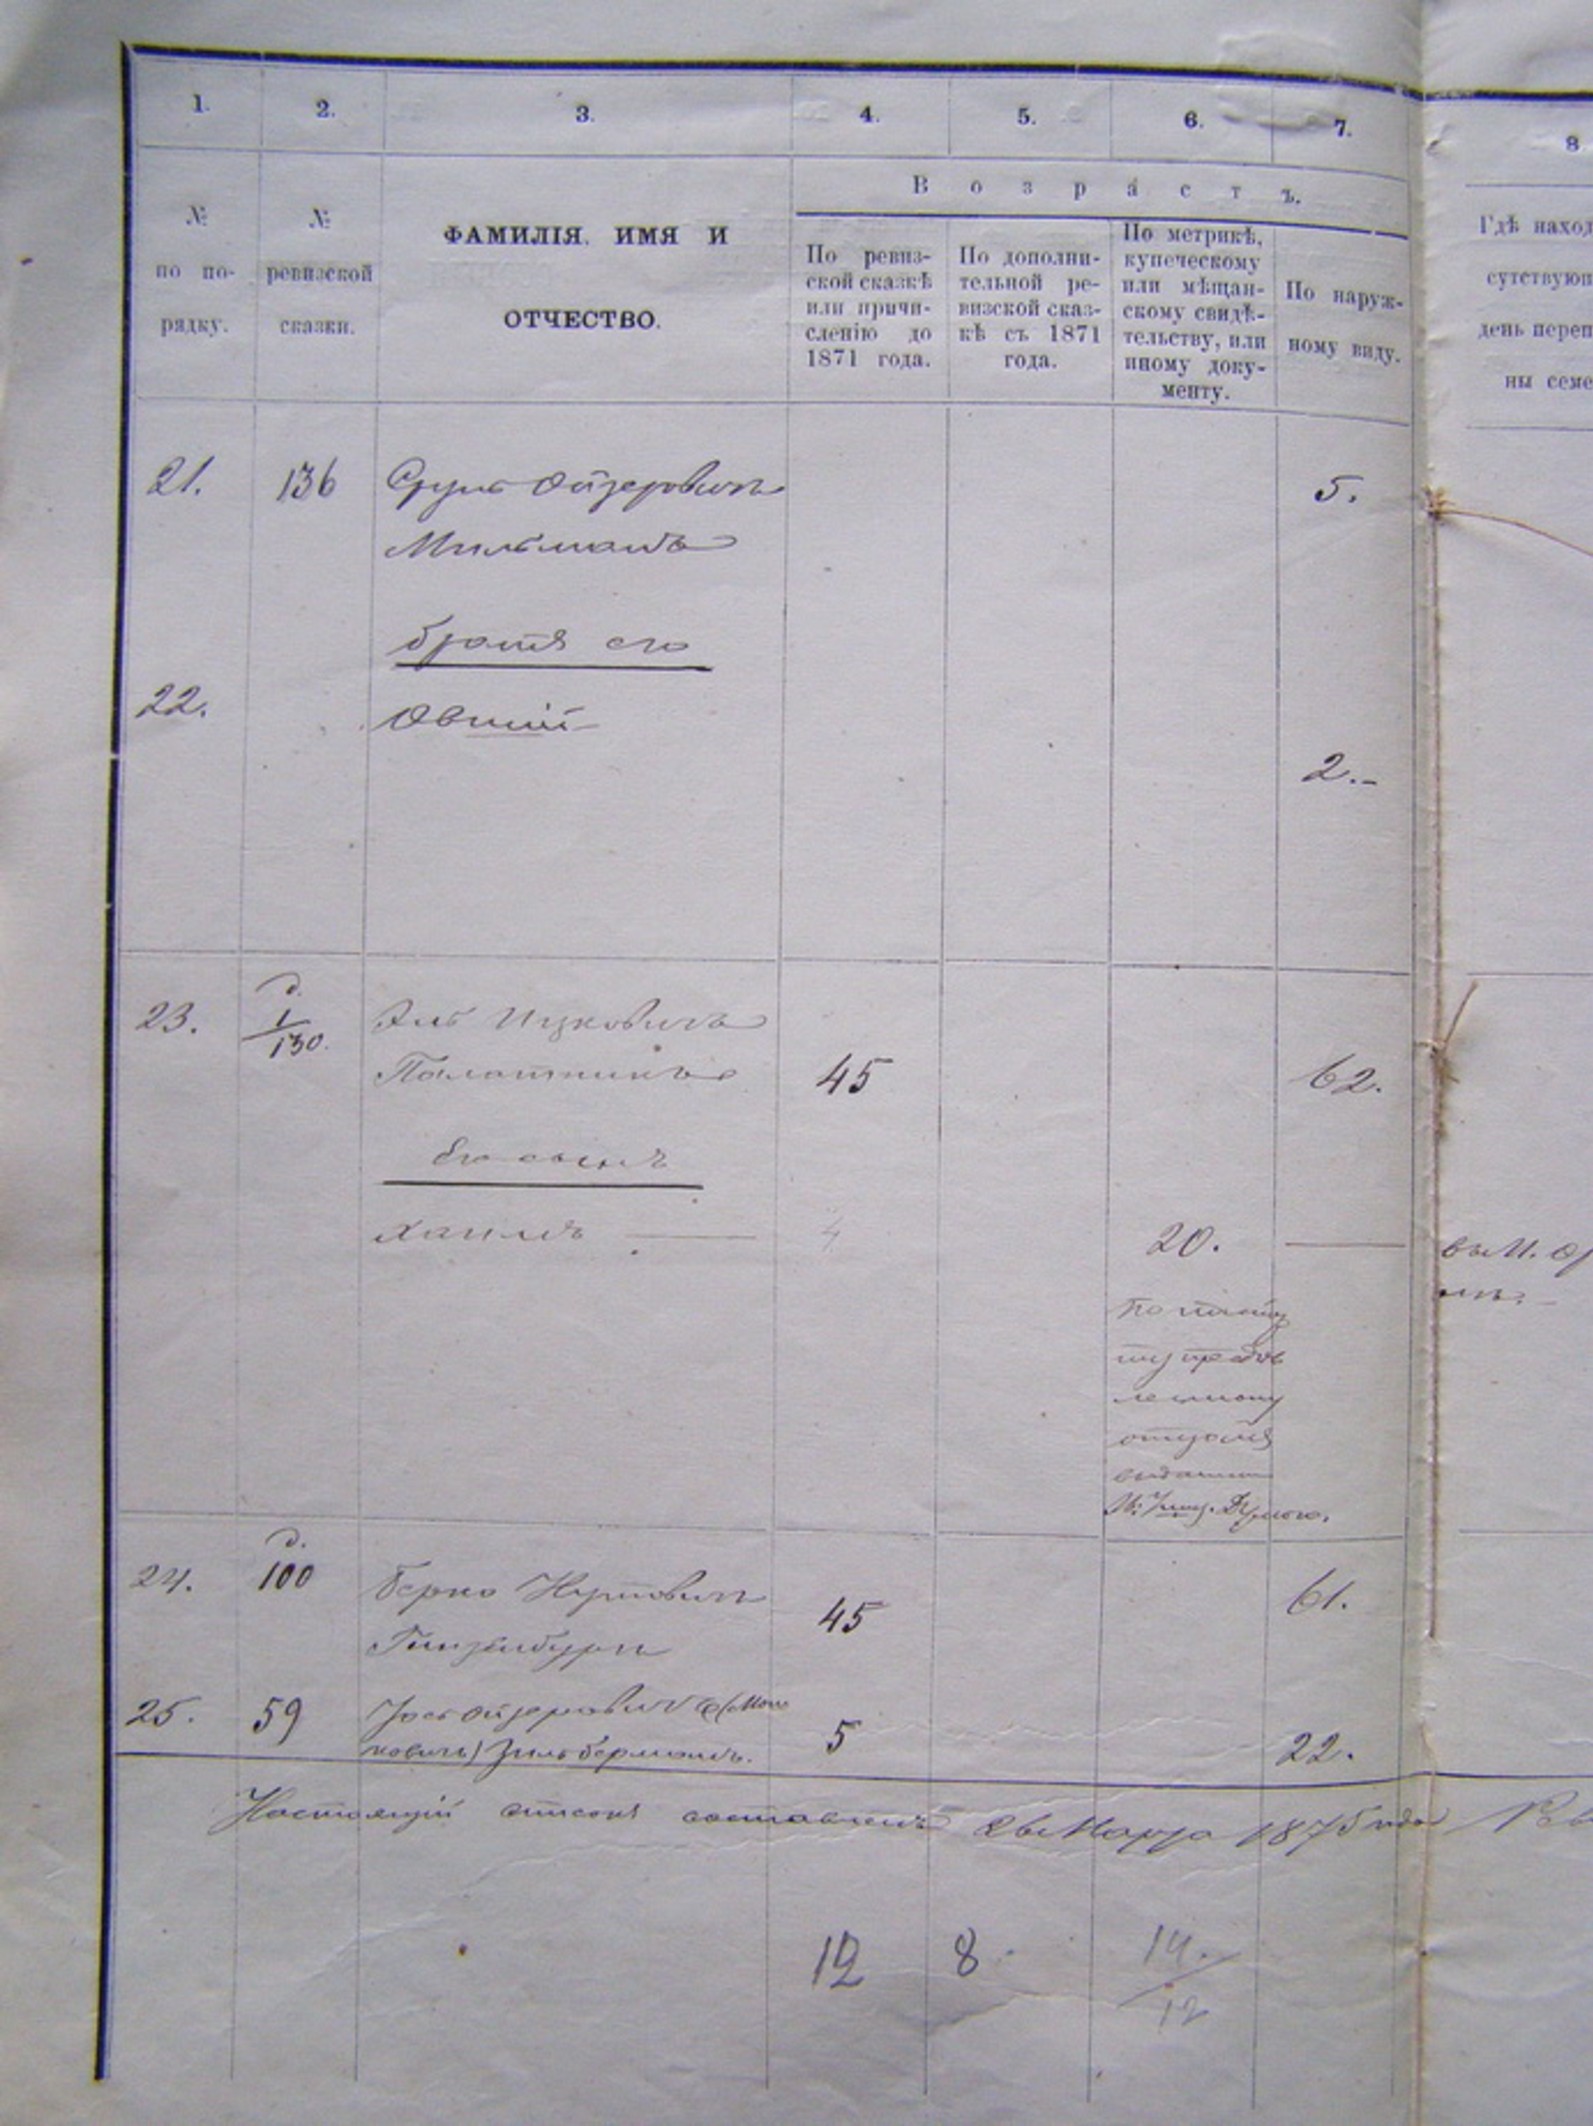 1. 2. 3. 4. 5. 6. 7. 8
№ по по- рядку.
№ ревизской сказки.
ФАМИЛІЯ, ИМЯ И
ОТЧЕСТВО.
Возрастъ.
По ревиз-
ской сказкѣ
или причи-
сленію до
1871 года.
По дополни-
тельной ре-
визской сказ-
кѣ съ 1871
года.
По метрикѣ,
купеческому
или мѣщан-
скому свидѣ-
тельству, или
иному доку-
менту.
По наруж-
ному виду.
Гдѣ наход
сутствующ
день переп
ны семе
21. 136 Сруль Ойзеровичъ 5.
Мильманъ
братъ его
22. Овшій
2.-
23. д. 1/130. Эль Ицковичъ
Палатникъ 45 62.
Его сынъ
Хаимъ 4 20.
24. д. 100 Берко Нутовичъ 61.
Гинзенбургъ 45
25. 59 Іось Ойзеровичъ (Мош
ковичъ) Зильберманъ. 5 22.
Настоящій списокъ составленъ Марта 1875 года
12 8 14. 12